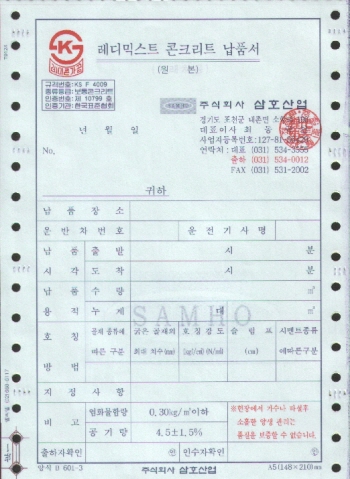 레디믹스트 콘크리트 납품서
(원 본)
규격번호:KS F 4009
종류등급:보통콘크리트
인증번호:제 10799 호
인증기관:한국표준협회
주식회사 삼호산업
경기도 포천군 내촌면
대표이사 최
년 월 일
사업자등록번호:127-81
연락처: 대표 (031) 534-3555
No.
출하 (031) 534-0012
FAX (031) 531-2002
귀하
납품장소
운반차번호 운전기사명
납품 출발 시 분
시각 도착 시 분
납품수량 ㎥
용적누계 대 ㎥
SAMHO
호칭 방법
골재 종류에 따른 구분
굵은 골재의 최대 치수(mm)
호칭강도 (kgf/㎠) (N/㎟)
슬럼프 (cm)
시멘트종류에따른구분
지정사항
비고 염화물함량 0.30kg/㎥이하
공기량 4.5±1.5%
※현장에서 가수나 타설후
소홀한 양생 관리는
품질을 보증할 수 없습니다.
출하자확인 ㊞ 인수자확인 ㊞
양식 D 601-3 주식회사 삼호산업 A5(148×210)㎜